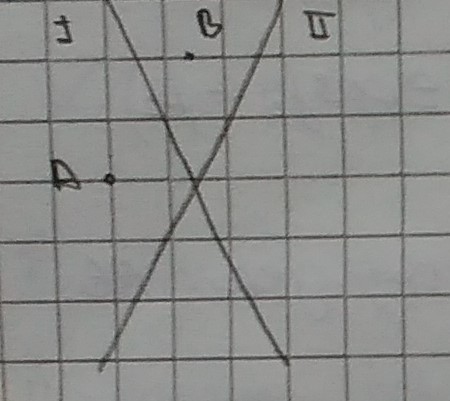 I B II
A